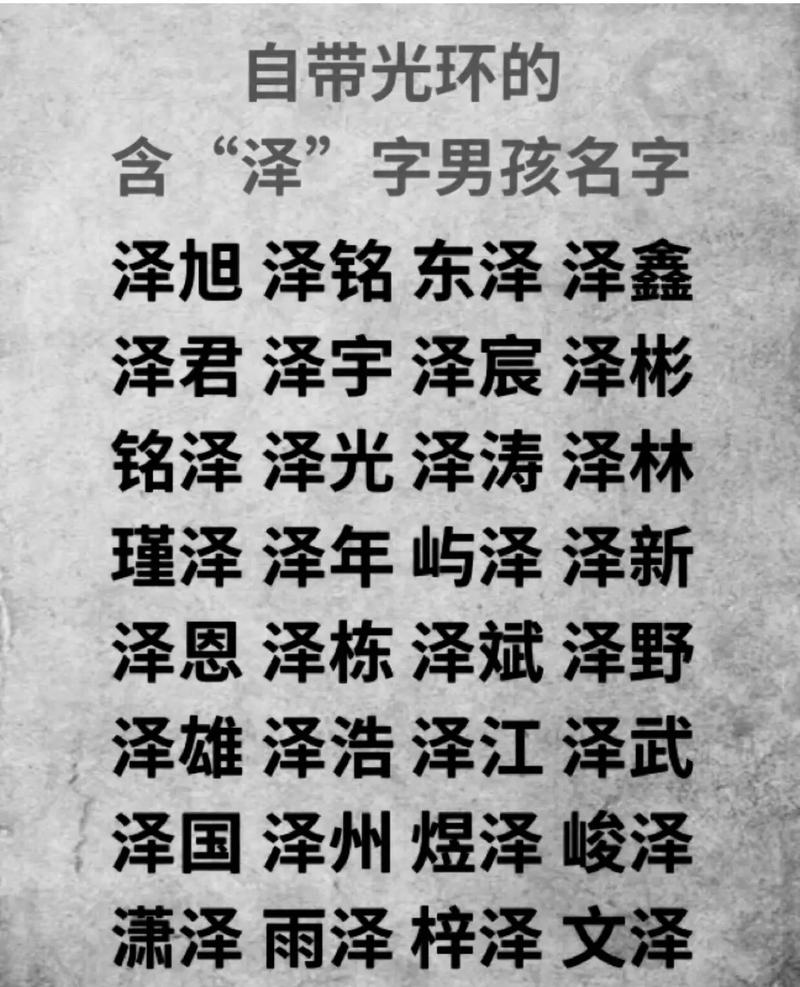 自带光环的
含“泽”字男孩名字
泽旭 泽铭 东泽 泽鑫
泽君 泽宇 泽宸 泽彬
铭泽 泽光 泽涛 泽林
瑾泽 泽年 屿泽 泽新
泽恩 泽栋 泽斌 泽野
泽雄 泽浩 泽江 泽武
泽国 泽州 煜泽 峻泽
潇泽 雨泽 梓泽 文泽